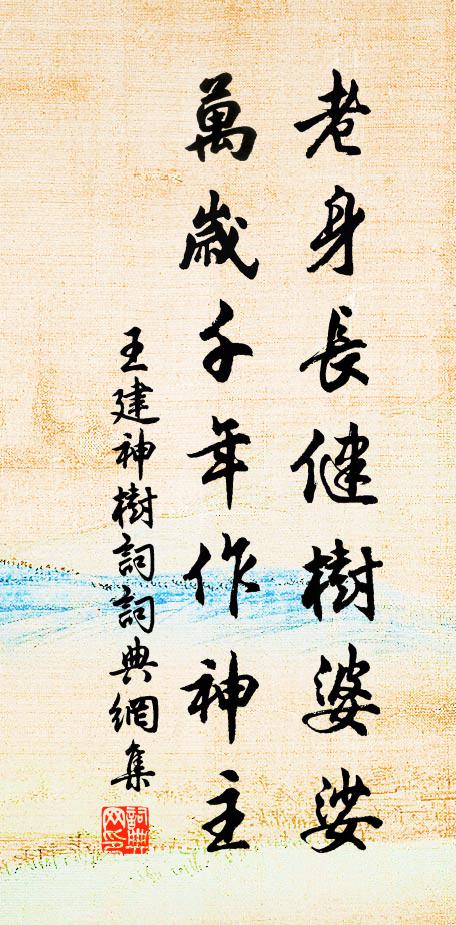 老身長健樹婆娑
萬歲千年作神主
王建神樹詞詞典網集
詞典网印